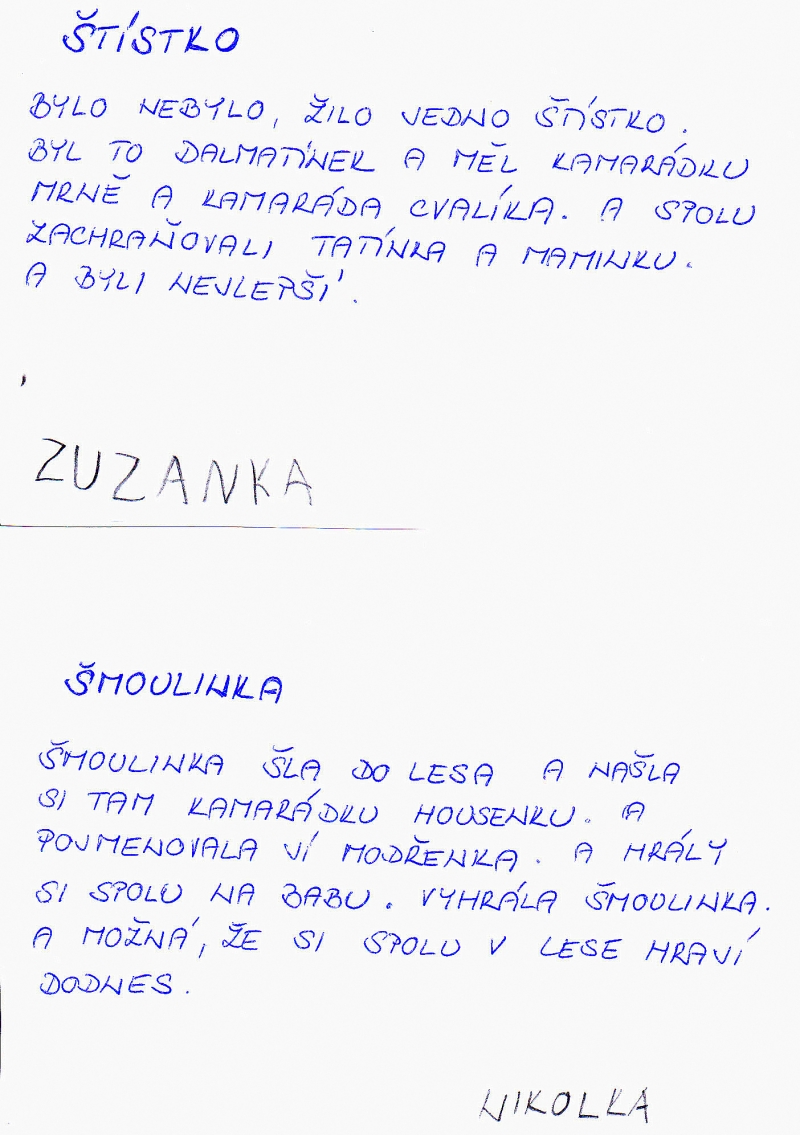 ŠTÍSTKO
BYLO NEBYLO, ŽILO JEDNO ŠTÍSTKO.
BYL TO DALMATÍNEK A MĚL KAMARÁDKU
MRNĚ A KAMARÁDA CVALÍKA. A SPOLU
ZACHRAŇOVALI TATÍNKA A MAMINKU.
A BYLI NEJLEPŠÍ.
ZUZANKA
ŠMOULINKA
ŠMOULINKA ŠLA DO LESA A NAŠLA
SI TAM KAMARÁDKU HOUSENKU. A
POJMENOVALA JÍ MODŘENKA. A HRÁLY
SI SPOLU NA BABU. VYHRÁLA ŠMOULINKA.
A MOŽNÁ, ŽE SI SPOLU V LESE HRAJÍ
DODNES.
NIKOLKA